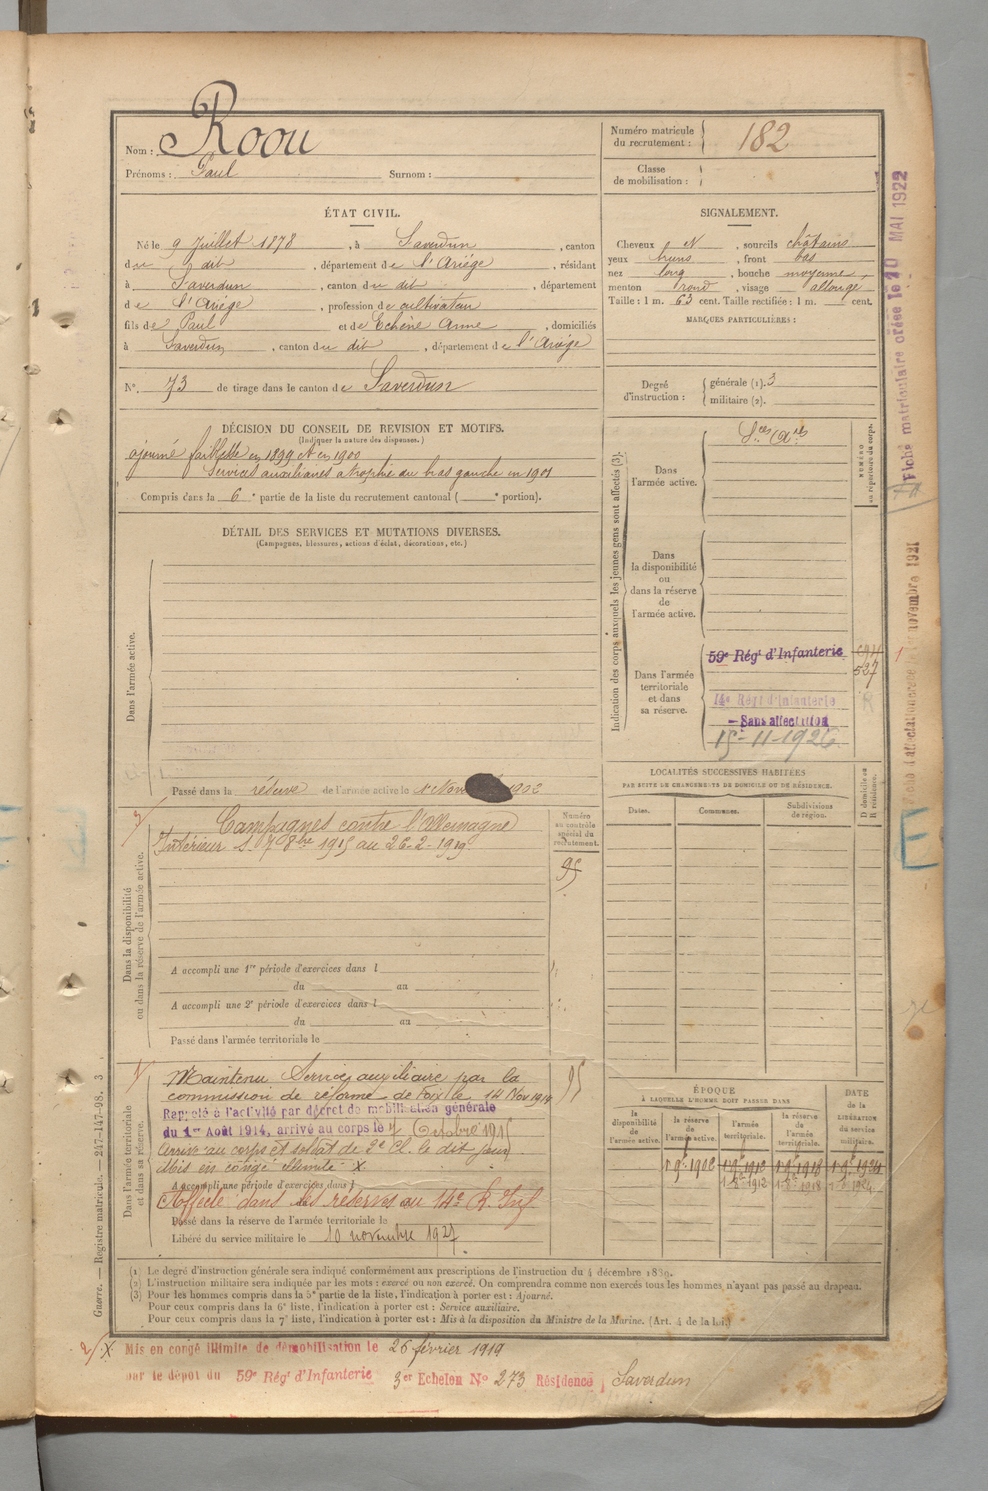 Nom : Roou
Prénoms : Paul Surnom :
Numéro matricule du recrutement : 182
Classe de mobilisation :
ÉTAT CIVIL.
Né le 9 Juillet 1878, à Saverdun, canton
du dit, département de l'Ariège, résidant
à Saverdun, canton du dit, département
de l'Ariège, profession de cultivateur
fils de Paul et de Echène Anne, domiciliés
à Saverdun, canton du dit, département de l'Ariège
N°. 73 de tirage dans le canton de Saverdun
SIGNALEMENT.
Cheveux N, sourcils châtains
yeux bruns, front bas
nez long, bouche moyenne,
menton rond, visage allongé
Taille : 1 m. 63 cent. Taille rectifiée : 1 m. cent.
MARQUES PARTICULIÈRES :
Degré d'instruction : générale (1). 3
militaire (2).
DÉCISION DU CONSEIL DE REVISION ET MOTIFS.
(Indiquer la nature des dispenses.)
ajourné faiblesse en 1899 et en 1900
Services auxiliaires atrophie du bras gauche en 1901
Compris dans la 6e partie de la liste du recrutement cantonal ( e portion).
DÉTAIL DES SERVICES ET MUTATIONS DIVERSES.
(Campagnes, blessures, actions d'éclat, décorations, etc.)
Dans l'armée active.
Passé dans la réserve de l'armée active le 1 Nov 1902
Indication des corps auxquels les jeunes gens sont affectés (3).
NUMÉRO au répertoire du corps.
Dans l'armée active.
Dans la disponibilité ou dans la réserve de l'armée active.
Dans l'armée territoriale et dans sa réserve.
59e Régt d'Infanterie
527
14e Régt d'Infanterie
Sans affectation
15-11-1926
LOCALITÉS SUCCESSIVES HABITÉES
PAR SUITE DE CHANGEMENTS DE DOMICILE OU DE RÉSIDENCE.
Dates.
Communes.
Subdivisions de région.
D domicile ou R résidence.
Dans la disponibilité ou dans la réserve de l'armée active.
Numéro au contrôle spécial du recrutement.
Campagnes contre l'Allemagne
Intérieur S. 7 8bre 1915 au 26-2-1919
95
A accompli une 1re période d'exercices dans l
du au
A accompli une 2e période d'exercices dans l
du au
Passé dans l'armée territoriale le
Dans l'armée territoriale et dans sa réserve.
Maintenu Service auxiliaire par la
commission de réforme de Foix le 14 Nov 1914
95
Rappelé à l'activité par décret de mobilisation générale
du 1er Août 1914, arrivé au corps le 7 Octobre 1915
Arrivé au corps et soldat de 2e Cl. le dit jour
Mis en congé illimité X
A accompli une période d'exercices dans l
Affecté dans les réserves au 14e R. Inf
Passé dans la réserve de l'armée territoriale le
Libéré du service militaire le 10 novembre 1927
ÉPOQUE
À LAQUELLE L'HOMME DOIT PASSER DANS
DATE de la LIBÉRATION du service militaire.
la disponibilité de l'armée active.
la réserve de l'armée active.
l'armée territoriale.
la réserve de l'armée territoriale.
1-9e 1902 1-9e 1912 1-9e 1918 1-9e 1924
1-8e 1912 1-8e 1918 1-8e 1924
(1) Le degré d'instruction générale sera indiqué conformément aux prescriptions de l'instruction du 4 décembre 1889.
(2) L'instruction militaire sera indiquée par les mots : exercé ou non exercé. On comprendra comme non exercés tous les hommes n'ayant pas passé au drapeau.
(3) Pour les hommes compris dans la 5e partie de la liste, l'indication à porter est : Ajourné.
Pour ceux compris dans la 6e liste, l'indication à porter est : Service auxiliaire.
Pour ceux compris dans la 7e liste, l'indication à porter est : Mis à la disposition du Ministre de la Marine. (Art. 4 de la loi.)
2/ X Mis en congé illimité de démobilisation le 26 février 1919
par le dépôt du 59e Régt d'Infanterie 3er Echelon No 273 Résidence Saverdun
Guerre. — Registre matricule. — 247-147-98. 3
Fiche matriculaire créée le 10 MAI 1922
novembre 1921
E